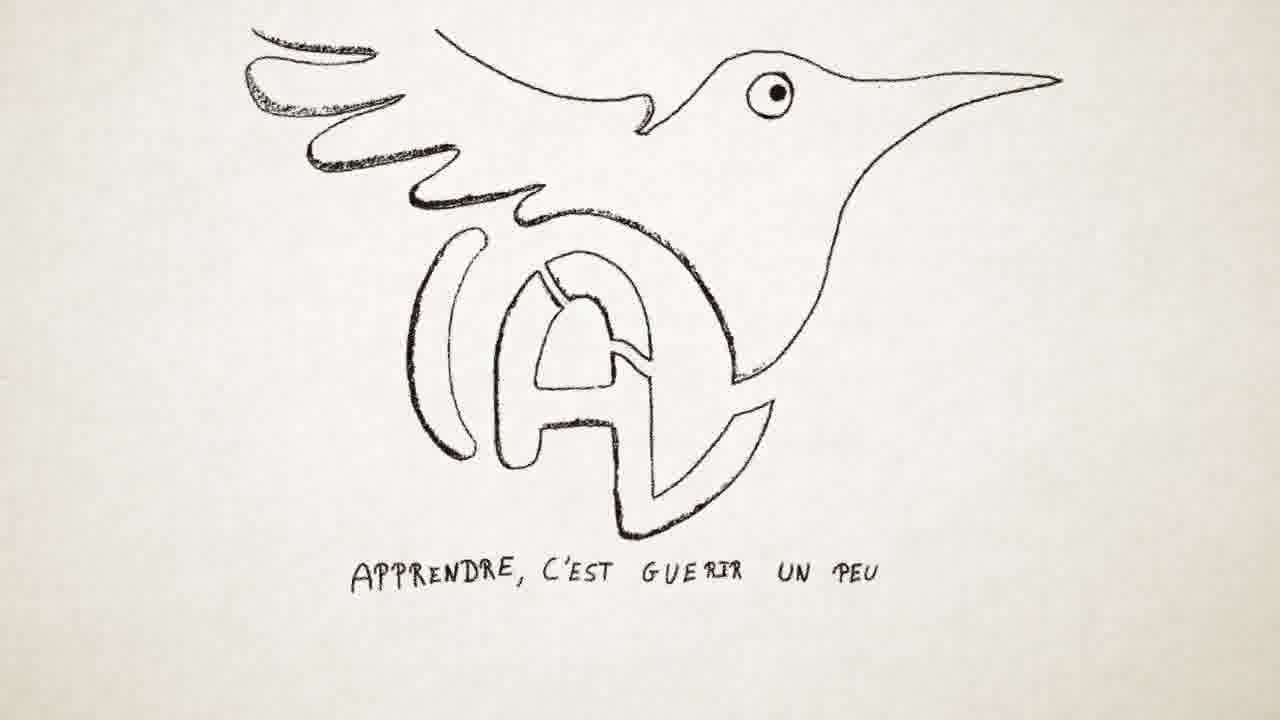 APPRENDRE, C'EST GUERIR UN PEU